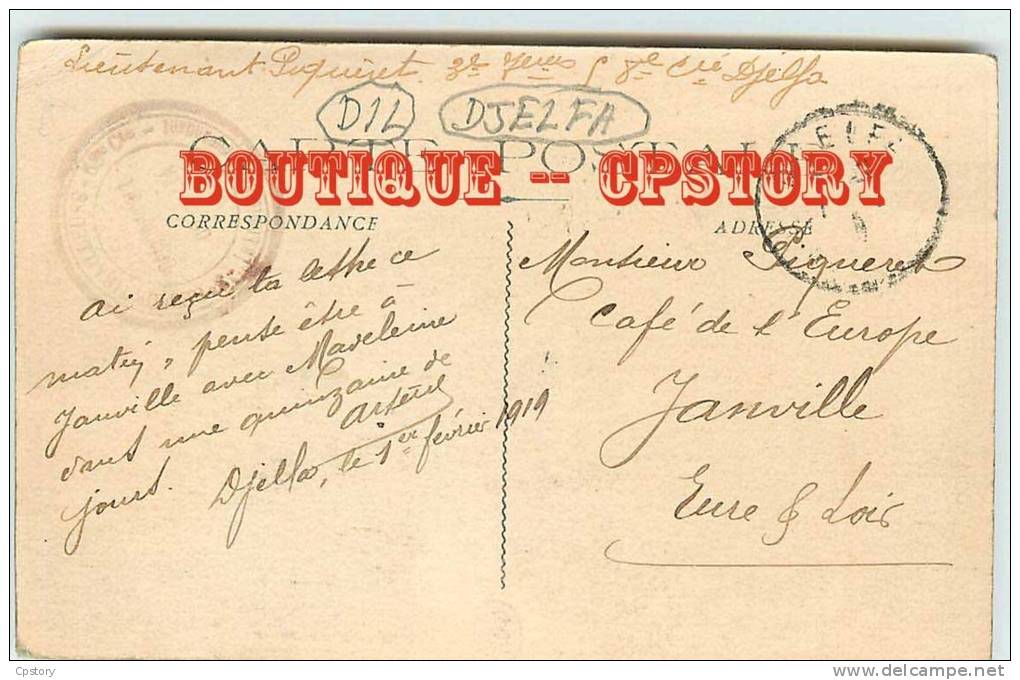 Lieutenant Piqueret. 8e Cie Djelfa
DIL DJELFA
CARTE POSTALE
BOUTIQUE -- CPSTORY
CORRESPONDANCE
ADRESSE
Ai reçu ta lettre ce
matin, pense être à
Janville avec Madeleine
dans une quinzaine de
jours.
Arsène
Djelfa, le 1er février 1919
Monsieur Piqueret
Café de l'Europe
Janville
Eure & Loir
Cpstory
www.delcampe.net